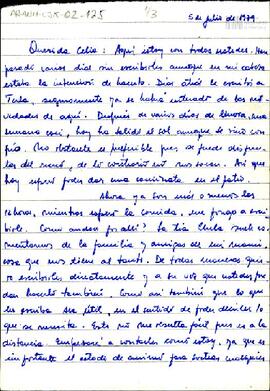 1/3
5 de julio de 1979.
Querida Celia: Aquí estoy con todos ustedes. Han
pasado varios días sin escribirles aunque en mi cabeza
estaba la intención de hacerlo. Días atrás le escribí a
seguramente ya se habrá enterado de las no-
vedades de aquí. Después de varios días de lluvia, una
semana casi, hoy ha salido el sol aunque se vino con
frío. No obstante es preferible pues se puede disfru-
tar del recreo, de lo contrario no nos sacan. Así que
hoy espero poder dar una caminata en el patio.
Ahora ya son más o menos las
horas, mientras espero la comida, me pongo a escri-
birle. Como andan por allí? La tía suele co-
mentarnos de la familia y amigos de mi mamá,
cosa que nos tiene al tanto. De todas maneras quie-
ro escribirles directamente y a su vez que ustedes pue-
dan hacerlo también. Como así también que lo que
les escriba sea útil, en el sentido de poder decirles lo
que se necesita. Esto no me resulta fácil pues es a la
distancia. Empezaré a contarles como estoy, ya que es
importante el estado de ánimo para sortear cualquier